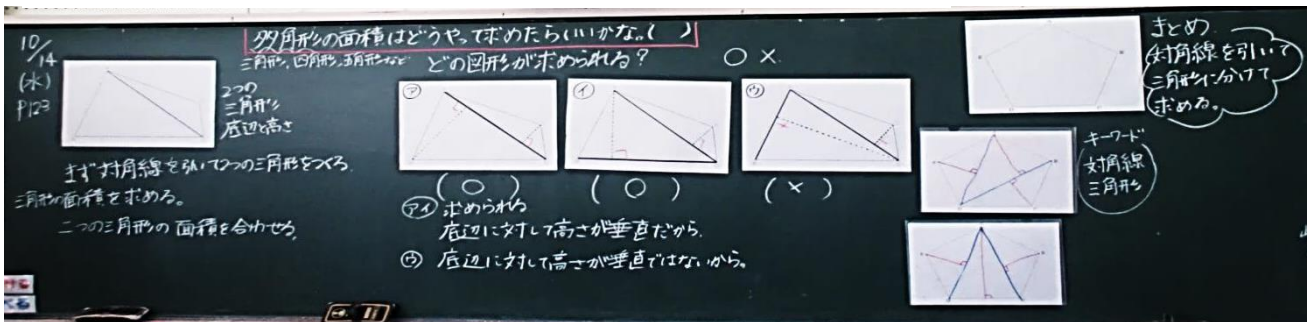 10/14
(水)
P123
多角形の面積はどうやって求めたらいいかな。( )
三角形、四角形、五角形など
どの図形が求められる?
○ ×
2つの
三角形
底辺と高さ
まず対角線を引いて2つの三角形をつくる。
三角形の面積を求める。
二つの三角形の面積を合わせる。
㋐
㋑
㋒
(○)
(○)
(×)
㋐㋑ 求められる
底辺に対して高さが垂直だから。
㋒ 底辺に対して高さが垂直ではないから。
まとめ
対角線を引いて
三角形に分けて
求める。
キーワード
対角線
三角形